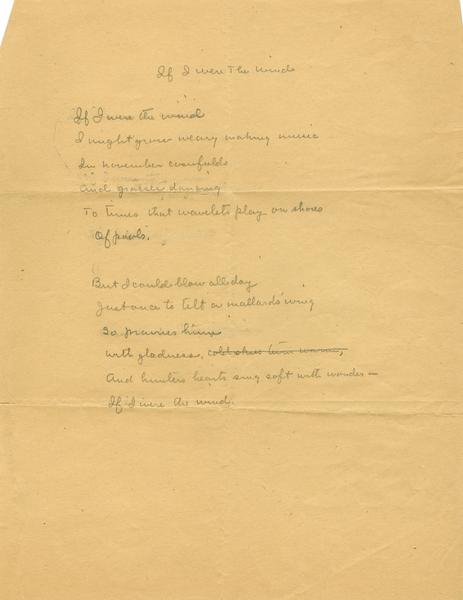 If I were The wind
If I were the wind
I might grow weary making music
In november cornfields
And grasses dancing
To tunes that wavelets play on shores
Of pools.
But I could blow all day
Just once to tilt a mallards' wing
So prairies hum
With gladness, cold skies turn warm,
And hunters hearts sing soft with wonder —
If I were the wind.